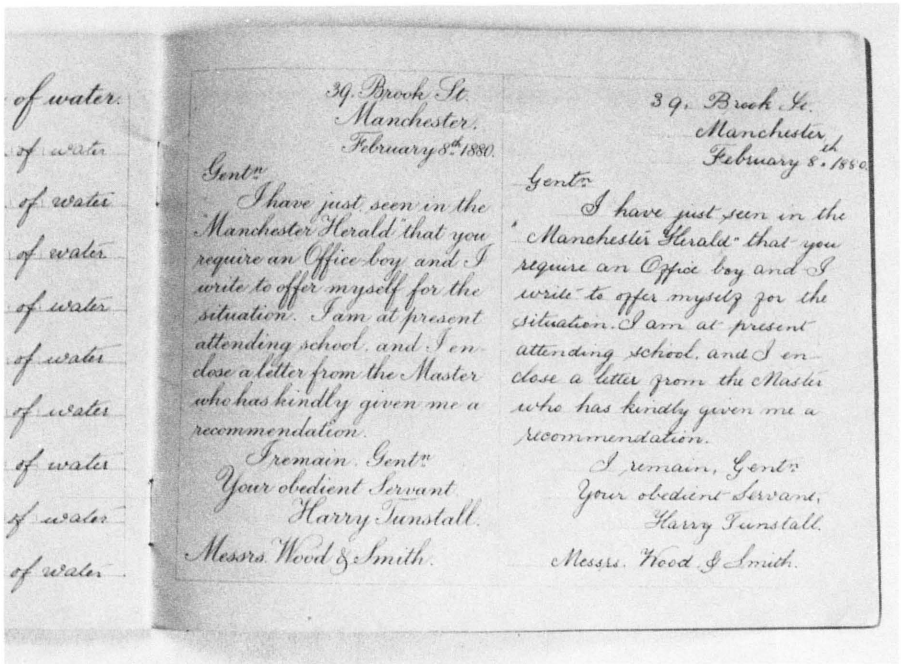 of water.
of water
of water
of water
of water
of water
of water
of water
of water
of water
39. Brook St.
Manchester.
February 8th 1880.
Gentn
I have just seen in the
"Manchester Herald" that you
require an Office boy and I
write to offer myself for the
situation. I am at present
attending school, and I en-
close a letter from the Master
who has kindly given me a
recommendation.
I remain, Gentn
Your obedient Servant
Harry Tunstall.
Messrs. Wood & Smith.
39, Brook St.
Manchester,
February 8th 1880.
Gentn
I have just seen in the
"Manchester Herald" that you
require an Office boy and I
write to offer myself for the
situation. I am at present
attending school, and I en-
close a letter from the Master
who has kindly given me a
recommendation.
I remain, Gentn
Your obedient Servant,
Harry Tunstall.
Messrs. Wood & Smith.